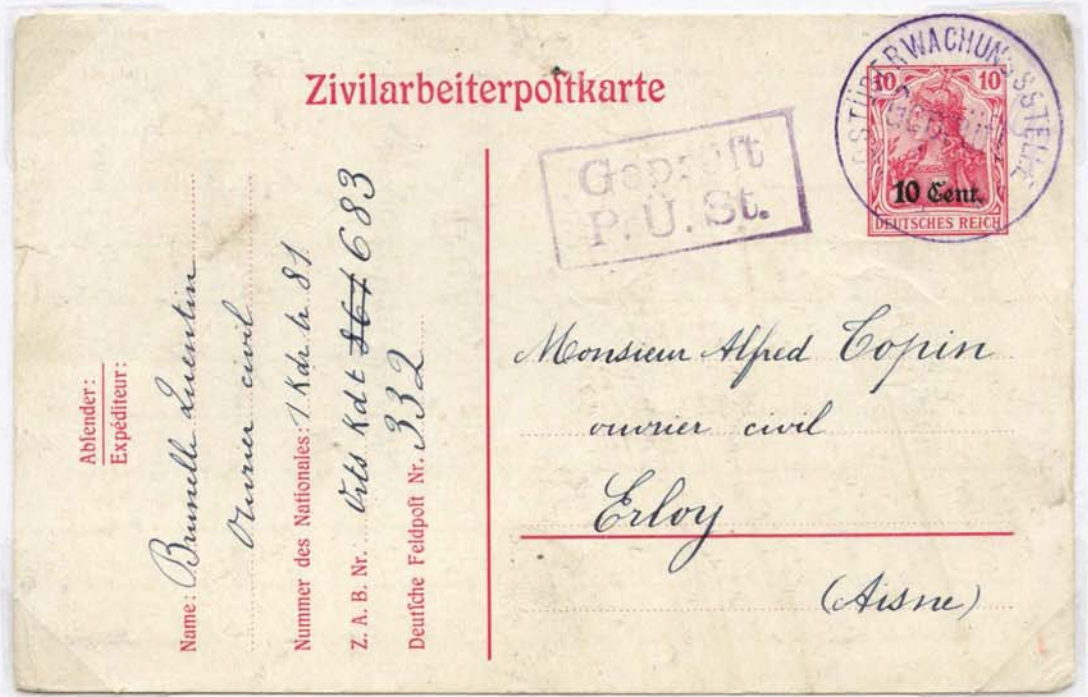 Zivilarbeiterpoſtkarte
Geprüft
P. Ü. St.
10 10
10 Cent.
DEUTSCHES REICH
Abſender:
Expéditeur:
Name: Brunelle Quentin
Ouvrier civil
Nummer des Nationales: 81
Z. A. B. Nr. Kdt 683
Deutſche Feldpoſt Nr. 332
Monsieur Alfred Copin
ouvrier civil
Erloy
(Aisne)